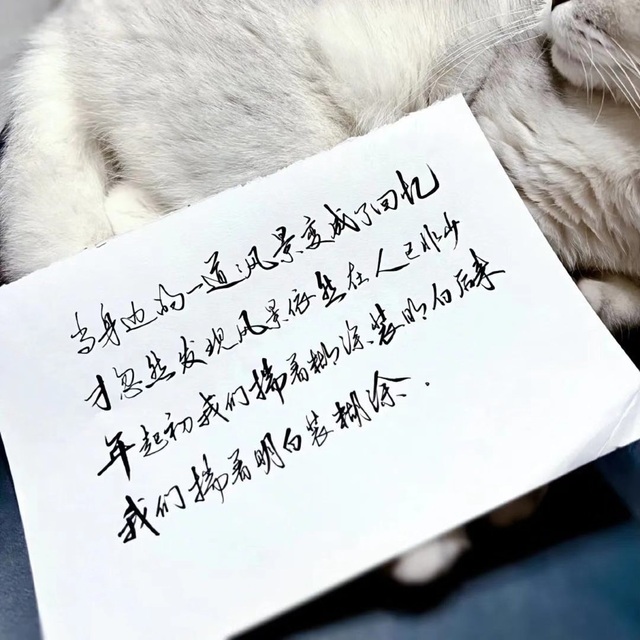 当身边的一道风景变成了回忆
才忽然发现风景依然在人已非少
年起初我们揣着糊涂装明白后来
我们揣着明白装糊涂.